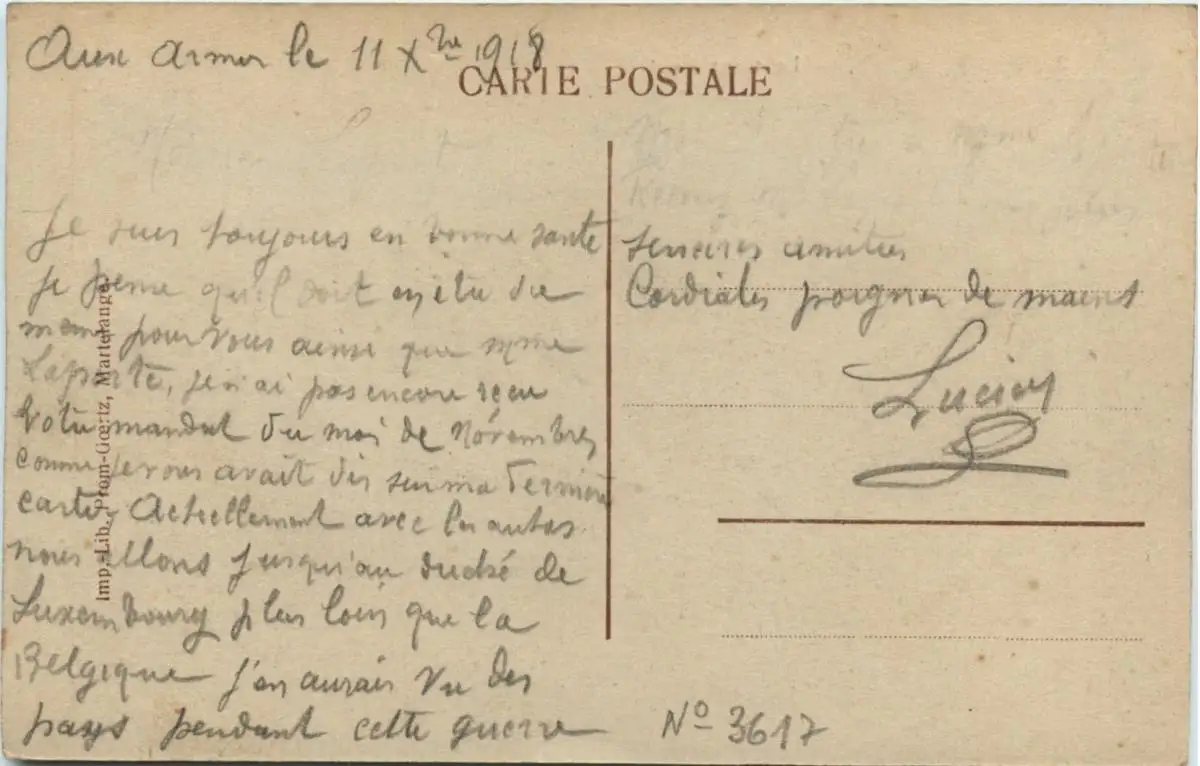 Aux Armes le 11 Xbre 1918
CARTE POSTALE
Je suis toujours en bonne sante
je pense qu'il doit en être de
meme pour vous ainsi que mme
Laporte, je n'ai pas encore reçu
Votre mandat du moi de Novembre,
comme je vous avait dis sur ma derniere
carte, Actuellement avec les autos
nous allons jusqu'au duché de
Luxembourg plus loin que la
Belgique j'en aurais vu des
pays pendant cette guerre
sinceres amities
Cordiales poignes de mains
Lucien
No 3617
Imp. Lib. Prom-Gœrtz, Martelange